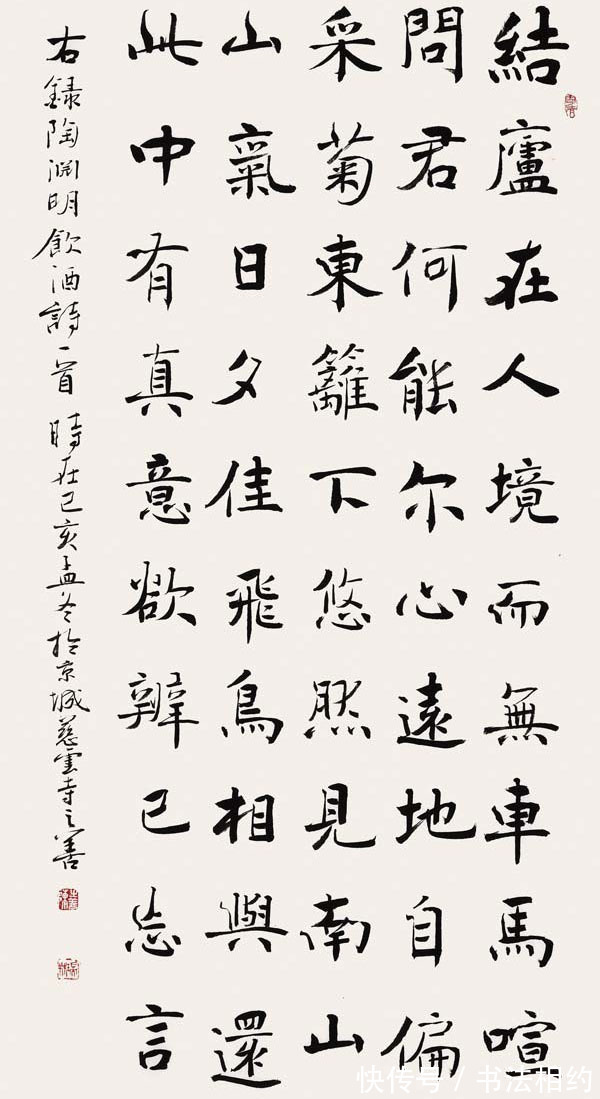 結廬在人境而無車馬喧
問君何能尔心遠地自偏
采菊東籬下悠然見南山
山氣日夕佳飛鳥相與還
此中有真意欲辨已忘言
右録陶渊明飲酒詩一首 時在己亥孟冬於京城慈雲寺之善
快传号/书法相约